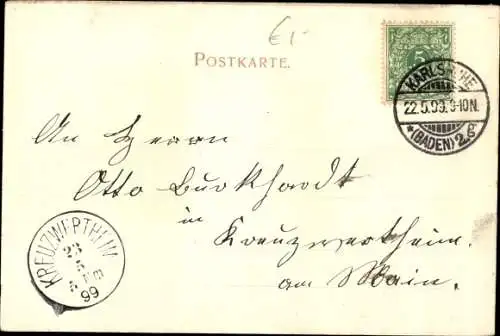 E1-
POSTKARTE.
5
KARLSRUHE
22.5.99.9-10N.
*(BADEN) 2g
An Herrn
Otto Burkhardt
in
Kreuzwertheim
am Main.
KREUZWERTHEIM
23
5
5 Nm
99